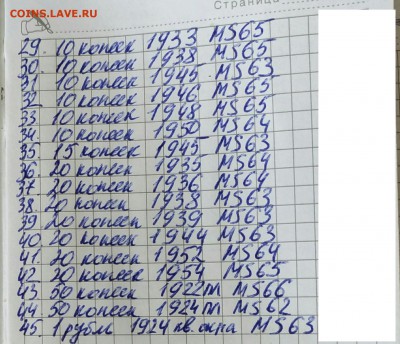 COINS.LAVE.RU
Страница
29. 10 копеек 1933 MS65
30. 10 копеек 1938 MS65
31. 10 копеек 1945 MS63
32. 10 копеек 1946 MS65
33. 10 копеек 1948 MS65
34. 10 копеек 1950 MS64
35. 15 копеек 1945 MS63
36. 20 копеек 1935 MS64
37. 20 копеек 1936 MS64
38. 20 копеек 1938 MS63
39. 20 копеек 1939 MS63
40. 20 копеек 1944 MS63
41. 20 копеек 1952 MS64
42. 20 копеек 1954 MS65
43. 50 копеек 1922 MS66
44. 50 копеек 1924 MS62
45. 1 рубль 1924 кв. окна MS63